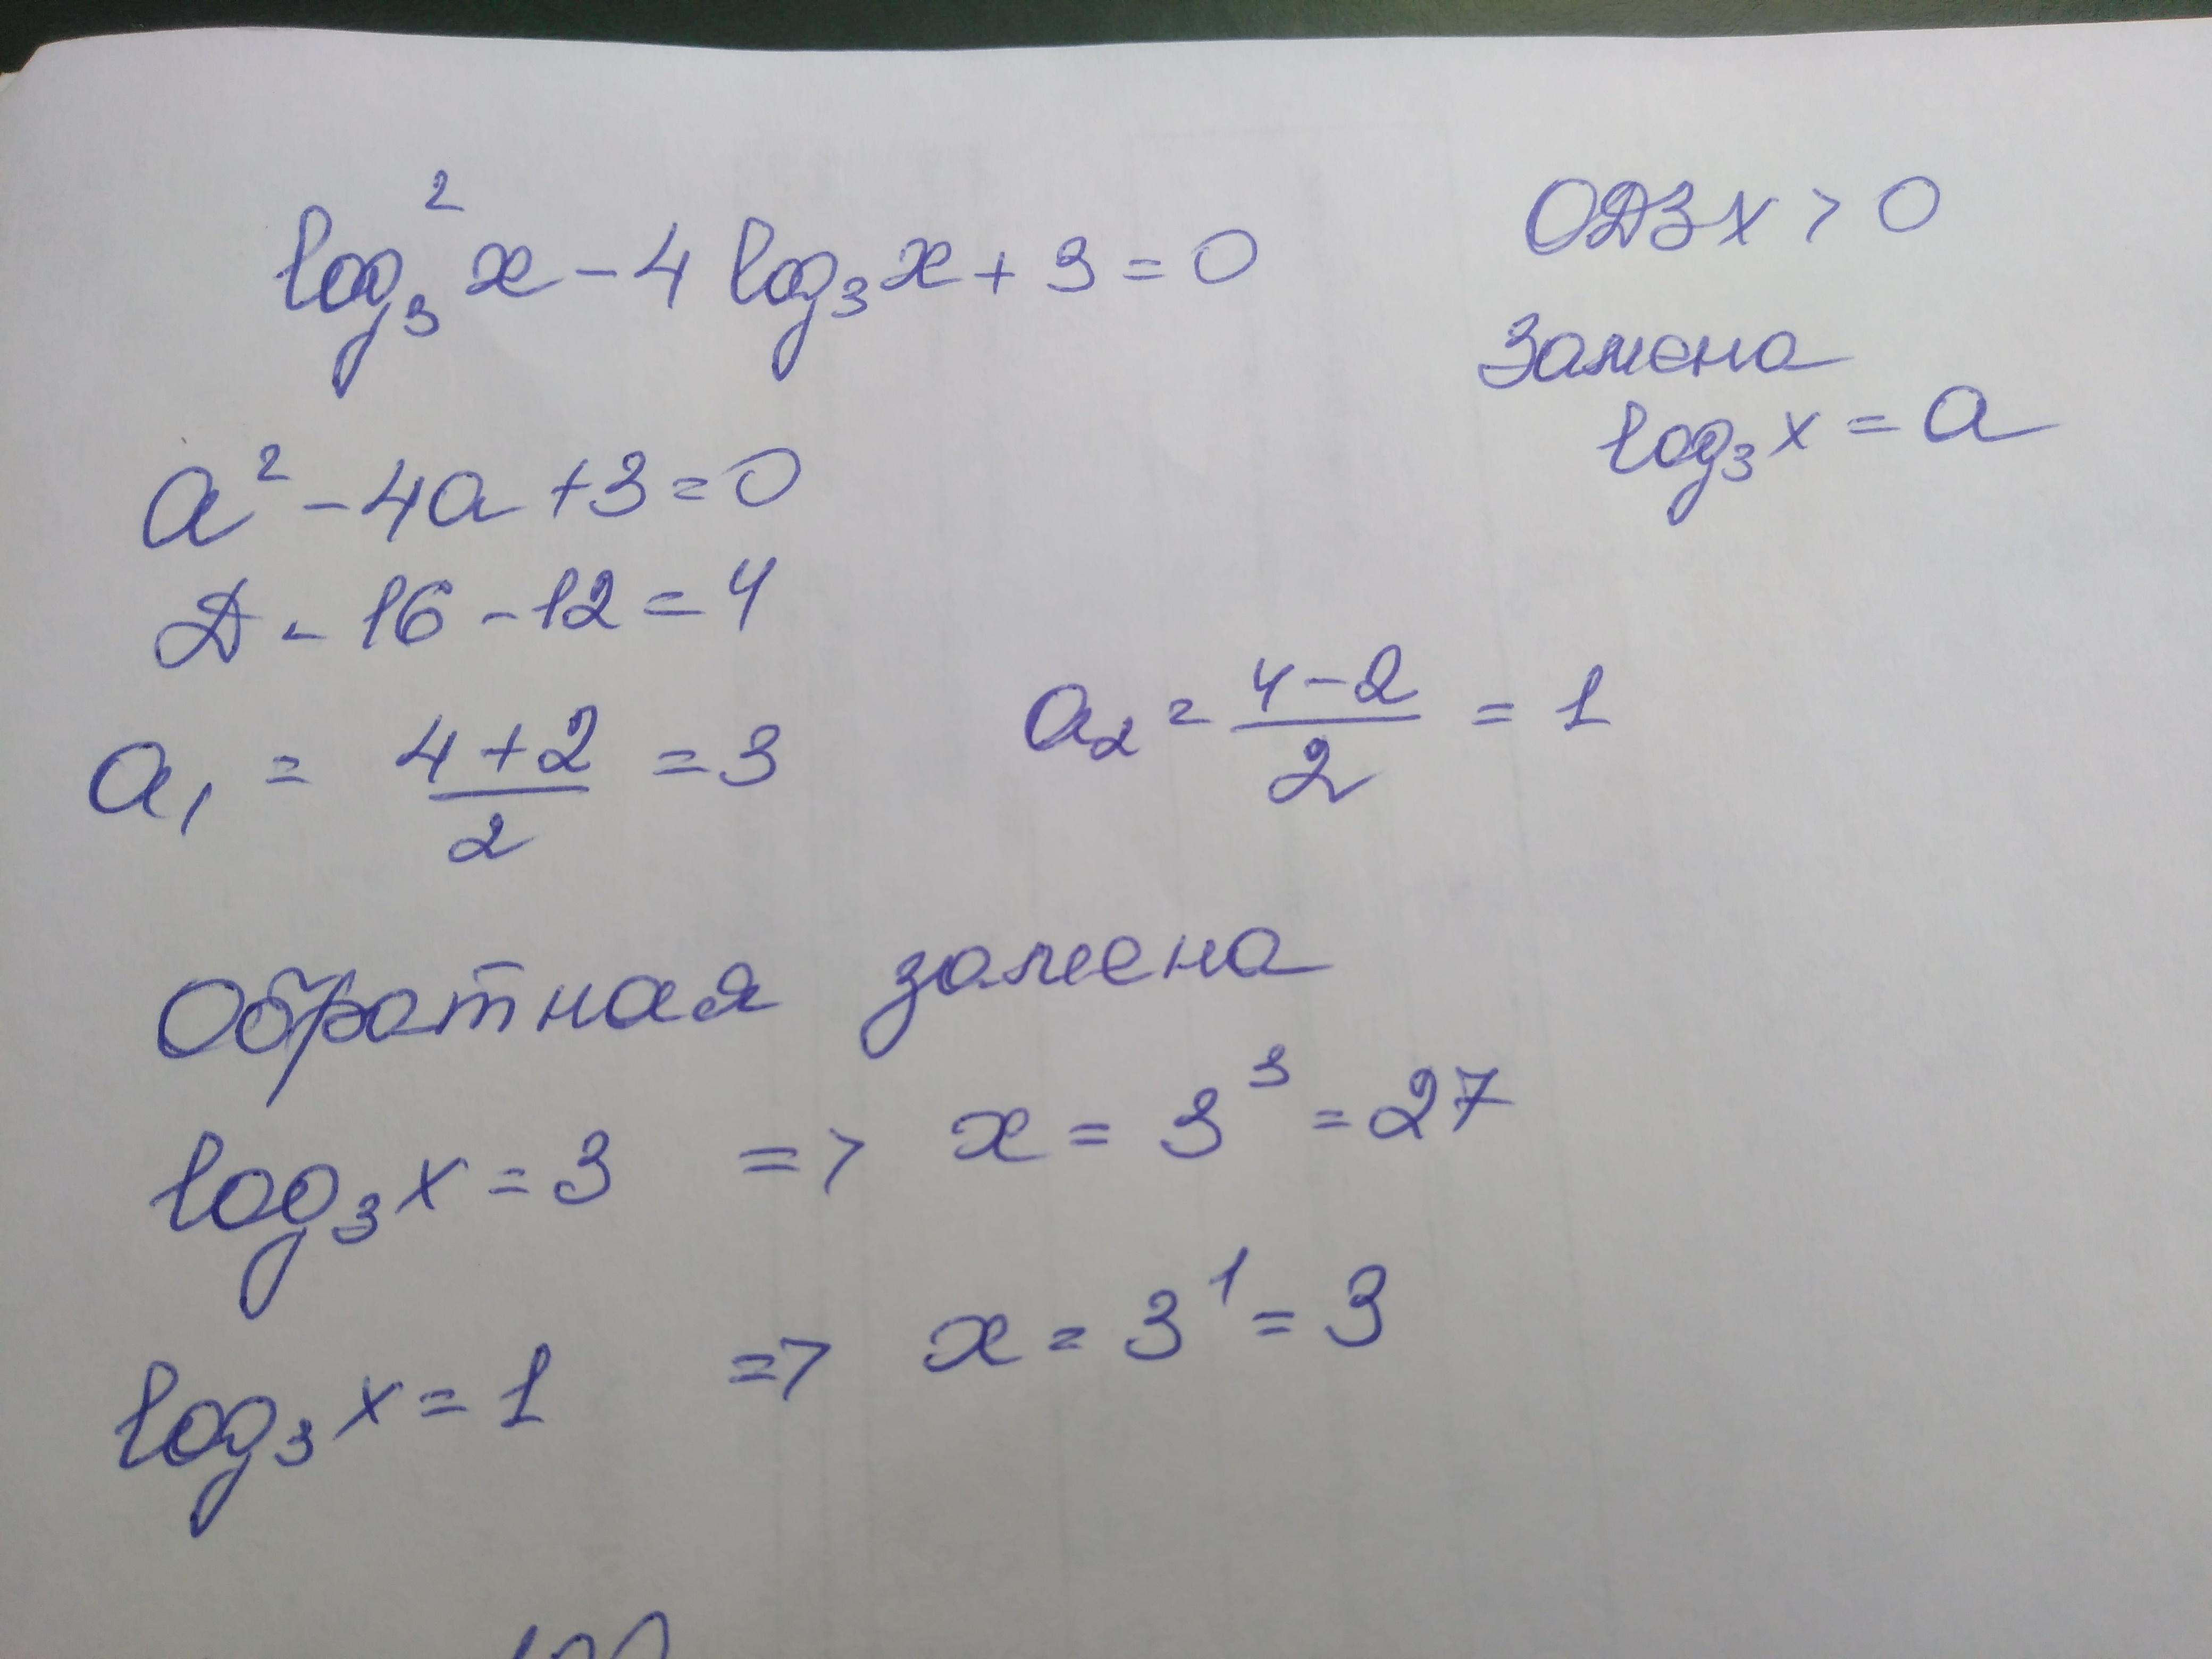 log₃² x - 4 log₃ x + 3 = 0
ОДЗ x > 0
Замена
log₃ x = a
a² - 4a + 3 = 0
Д = 16 - 12 = 4
a₁ = (4 + 2)/2 = 3
a₂ = (4 - 2)/2 = 1
Обратная замена
log₃ x = 3 => x = 3³ = 27
log₃ x = 1 => x = 3¹ = 3